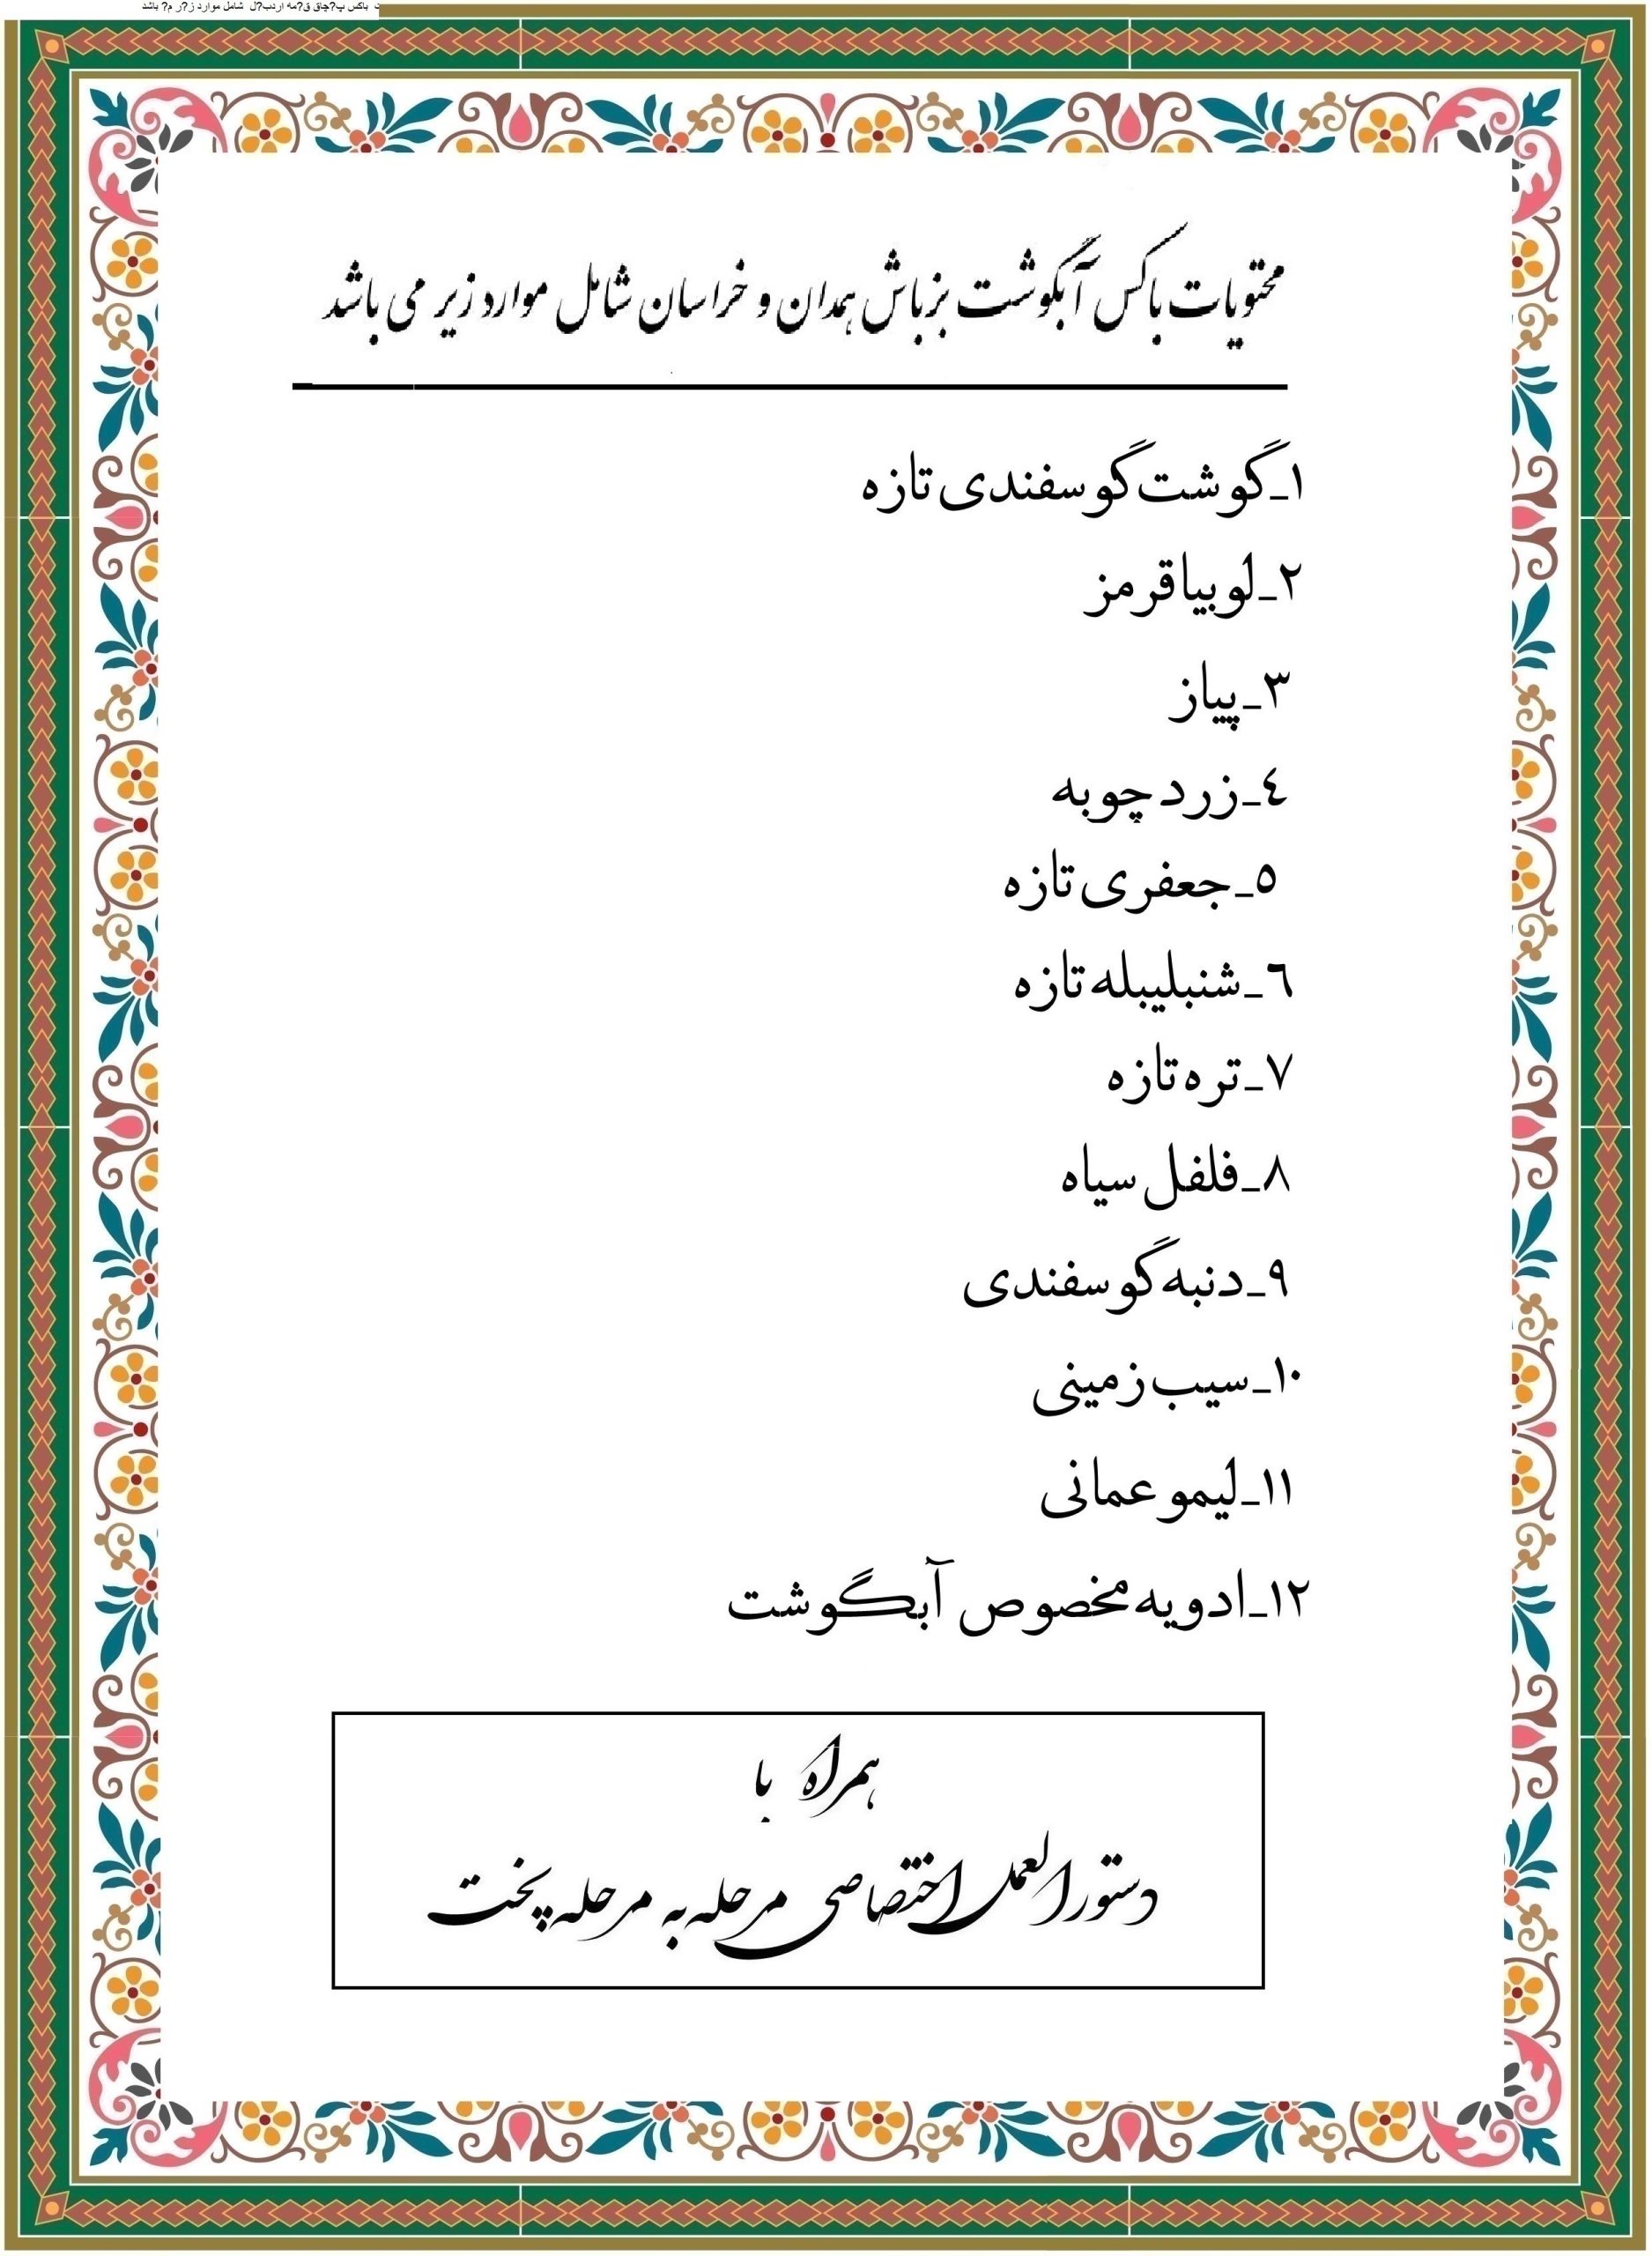 باکس پ?چاق ق?مه اردب?ل شامل موارد ز?ر م? باشد
محتویات باکس آبگوشت بزباش همدان و خراسان شامل موارد زیر می باشد
۱_گوشت گوسفندی تازه
۲_لوبیا قرمز
۳_پیاز
٤_زردچوبه
۵_جعفری تازه
٦_شنبلیبله تازه
۷_تره تازه
۸_فلفل سیاه
۹_دنبه گوسفندی
۱۰_سیب زمینی
۱۱_لیمو عمانی
۱۲_ادویه مخصوص آبگوشت
همراه با
دستورالعمل اختصاصی مرحله به مرحله پخت